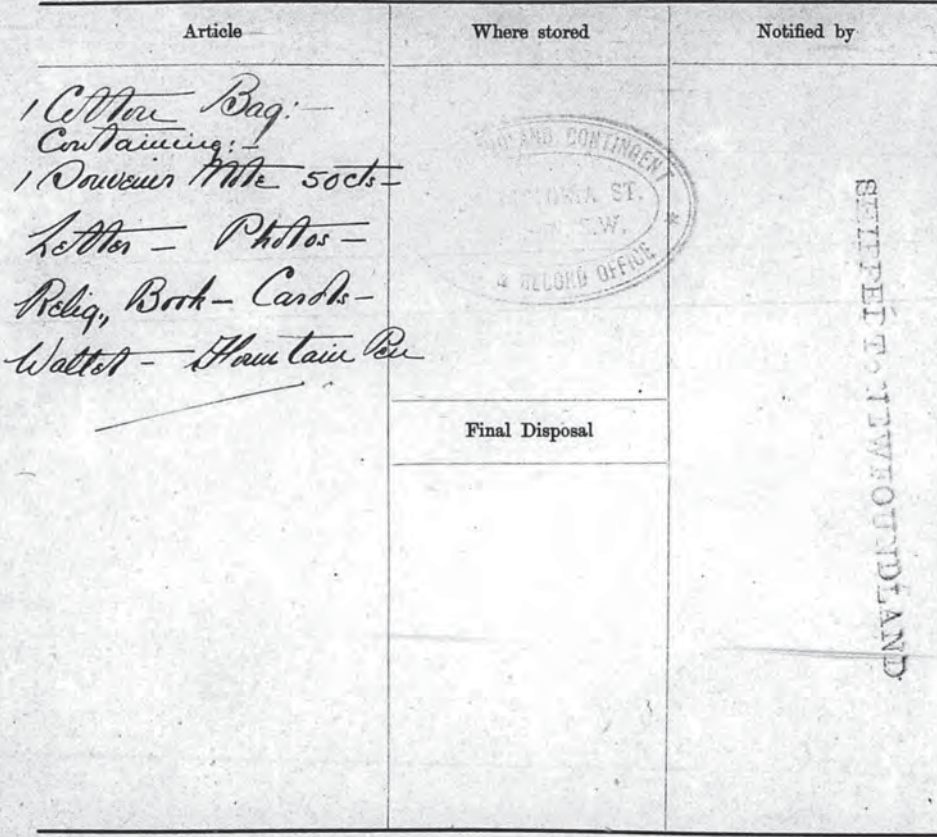 Article
Where stored
Notified by
1 Cotton Bag:-
Containing:-
1 Souvenir Note 50cts-
Letter - Photos -
Relig., Book - Cards -
Wallet - Fountain Pen
CONTINGENT
ST.
S.W.
& RECORD OFFICE
Final Disposal
SHIPPED TO NEWFOUNDLAND